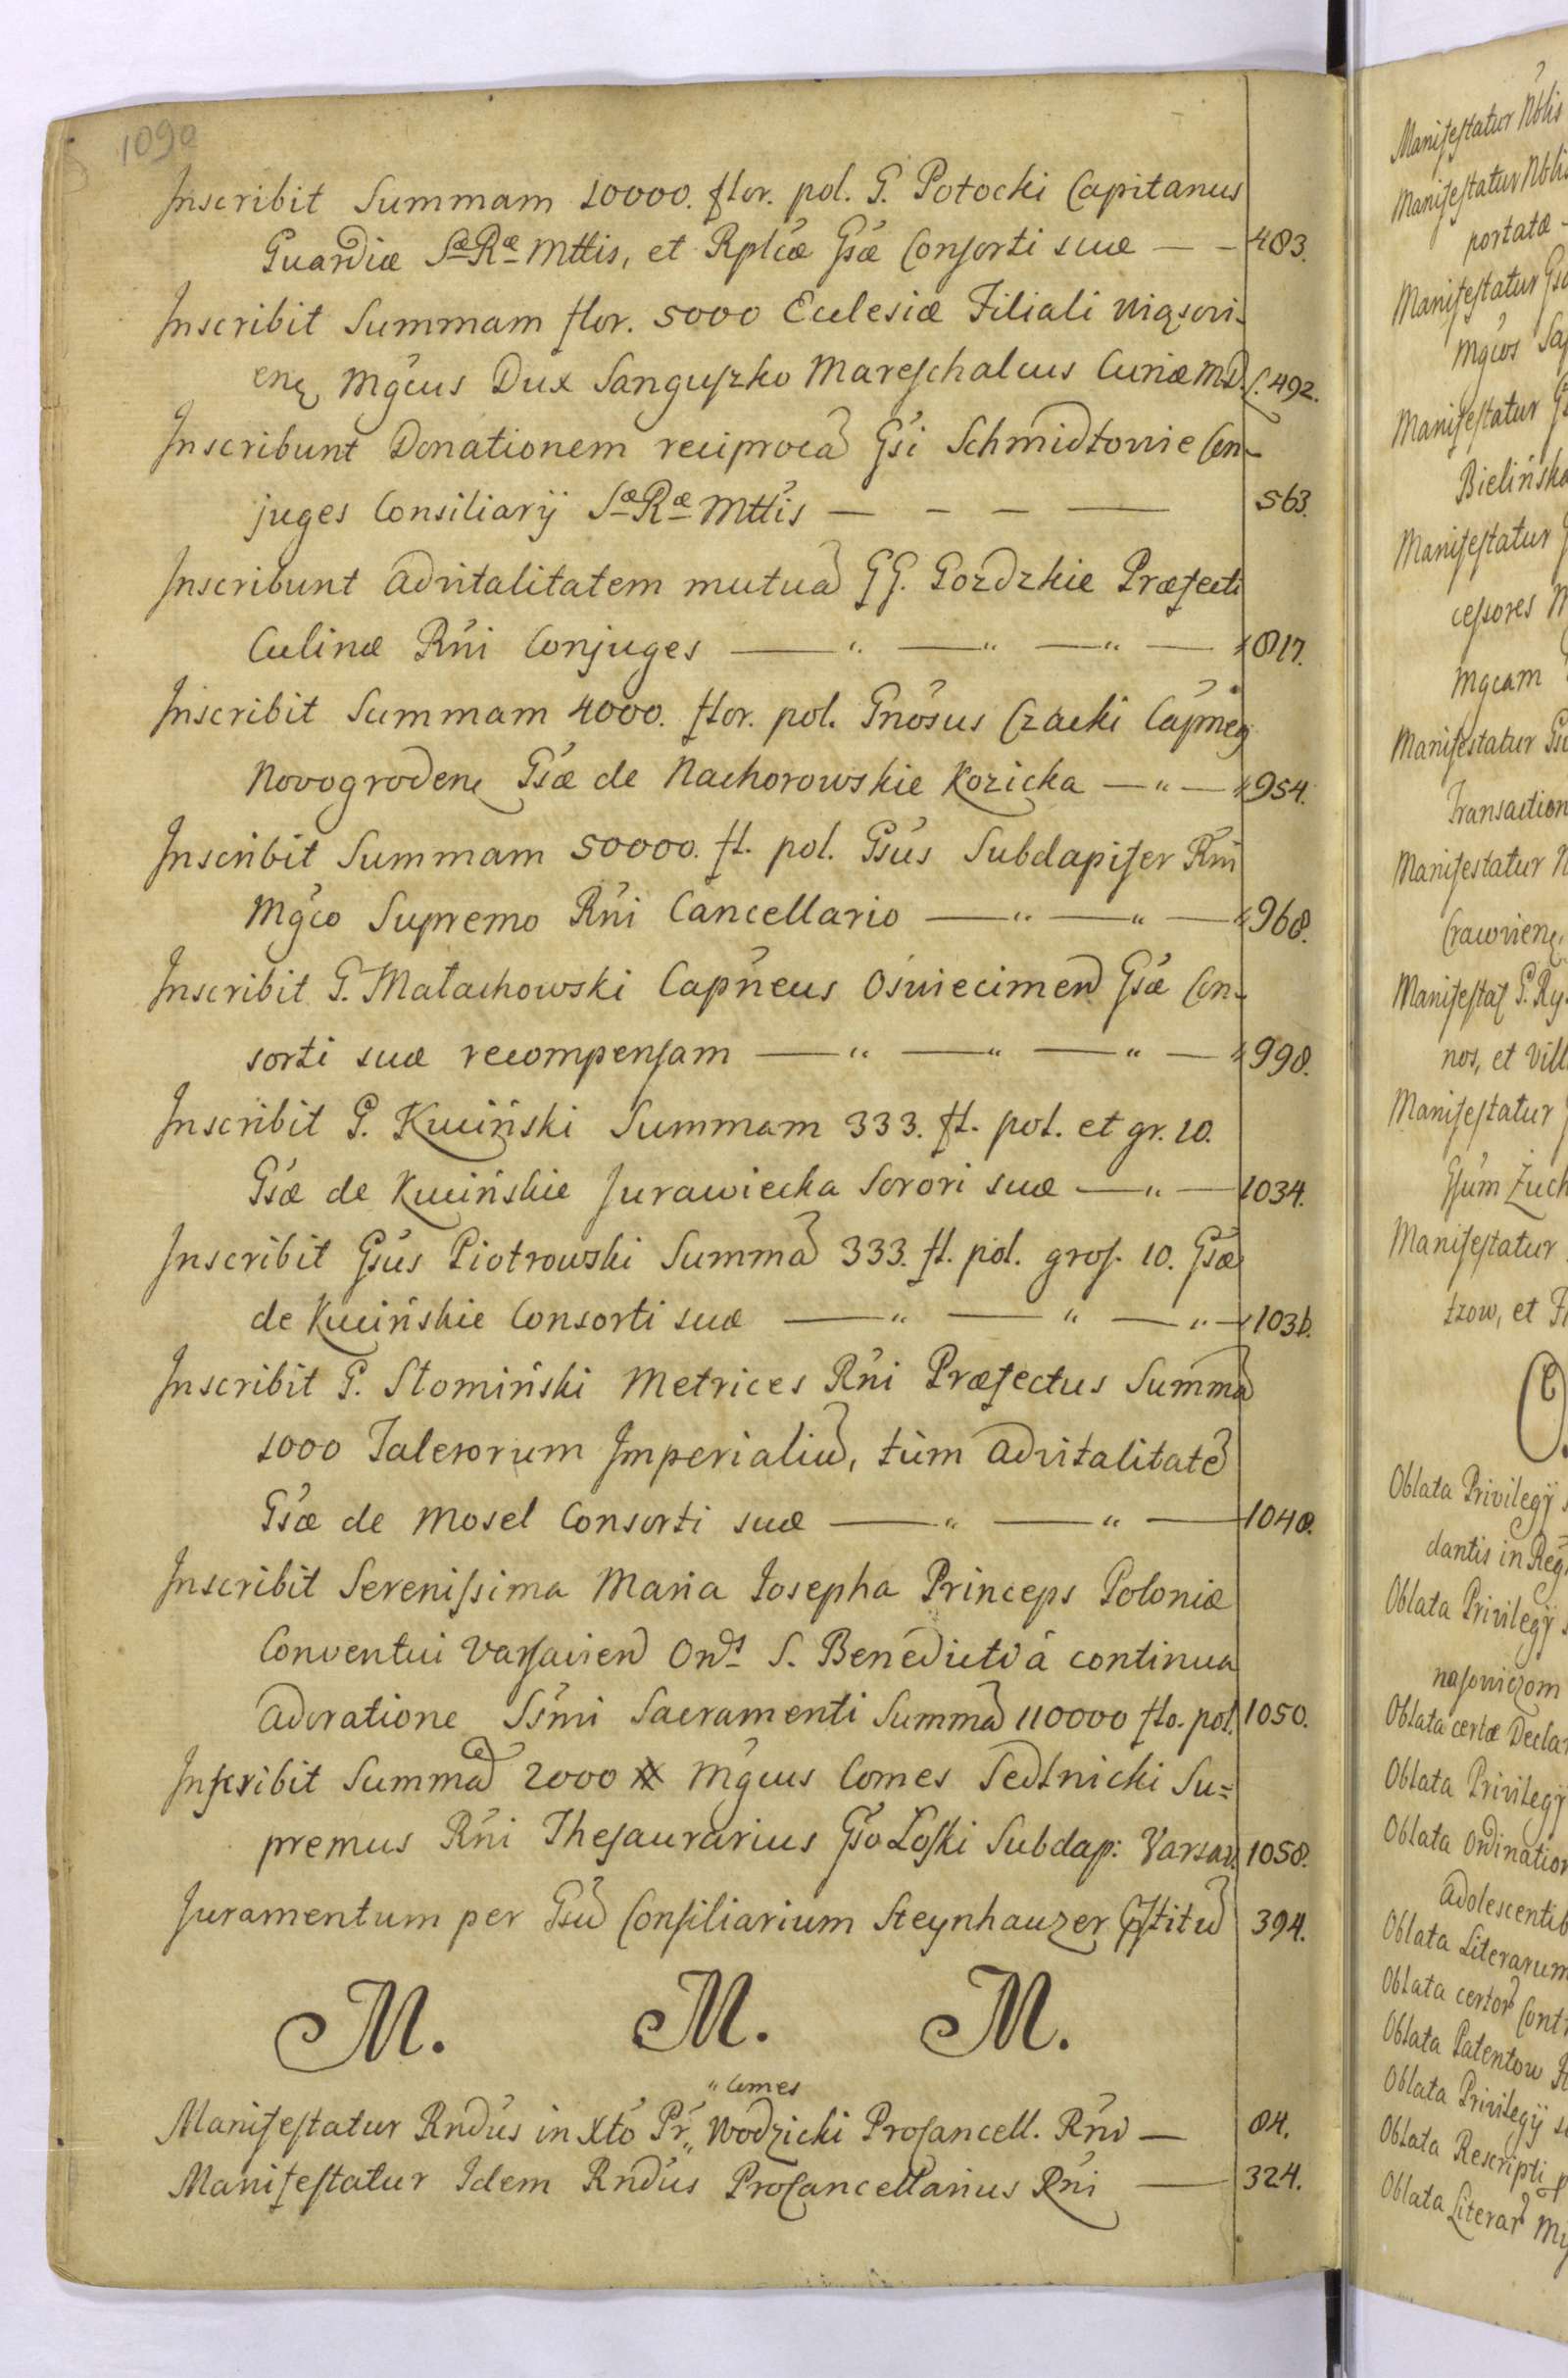 1090
Inscribit Summam 10000. flor. pol. G. Potocki Capitanus
Guardiæ Sæ Ræ Mttis, et Rplcæ Gsæ Consorti suæ — — 483.
Inscribit Summam flor. 5000 Ecclesiæ Filiali
Mgcus Dux Sanguszko Mareschalcus Curiæ M.D.L. 492.
Inscribunt Donationem reciprocã Gsi Schmidtowie Con-
juges Consiliarÿ Sæ Ræ Mttis — — — — 563.
Inscribunt advitalitatem mutuã GG. Gozdzkie Præfecti
Culinæ Rni Conjuges — " — " — " — 817.
Inscribit Summam 4000. flor. pol. Gnosus Czacki Capneus
Novogroden Gsæ de Nachorowskie Kozicka — " — 954.
Inscribit Summam 50000. fl. pol. Gsus Subdapifer Rni
Mgco Supremo Rni Cancellario — " — " — 968.
Inscribit G. Małachowski Capneus Oświecimen Gsæ Con-
sorti suæ recompensam — " — " — " — 998.
Inscribit G. Kuciński Summam 333. fl. pol. et gr. 10.
Gsæ de Kucińskie Jurawiecka Sorori suæ — " — 1034.
Inscribit Gsus Piotrowski Summã 333. fl. pol. gros. 10. Gsæ
de Kucińskie Consorti suæ — " — " — " — 1036.
Inscribit G. Słomiński Metrices Rni Præfectus Summã
1000 Talerorum Imperialiũ, tùm advitalitatẽ
Gsæ de Mosel Consorti suæ — " — " — 1048.
Inscribit Serenissima Maria Josepha Princeps Poloniæ
Conventui Varsavien Ords S. Benedicti à continua
adoratione Ssmi Sacramenti Summã 110000 flo. pol. 1050.
Inscribit Summã 2000 # Mgcus Comes Sedlnicki Su=
premus Rni Thesaurarius Gso Łoski Subdap: Varsav. 1058.
Juramentum per Gsũ Consiliarium Steynhauzer pstitũ 394.
M. M. M.
" Comes
Manifestatur Rndus in Xto Pr „ Wodzicki Procancell. Rni — 84.
Manifestatur Idem Rndus Procancellarius Rni — 324.
Manifestatur Nblis
Manifestatur Nblis
portatæ -
Manifestatur
Mgcos
Manifestatur
Bielińsk
Manifestatur
cessores
Mgcam
Manifestatur
Transaction
Manifestatur
Manifestat G. Ry
nos, et vill
Manifestatur
Gsum Zuch
Manifestatur
tzow, et
O.
Oblata Privilegÿ
dantis in Reg
Oblata Privilegÿ
Oblata certæ Decla
Oblata Privilegÿ
Oblata Ordination
adolescentib
Oblata Literarum
Oblata certor Cont
Oblata Patentow
Oblata Privilegÿ
Oblata Rescripti
Oblata Literar